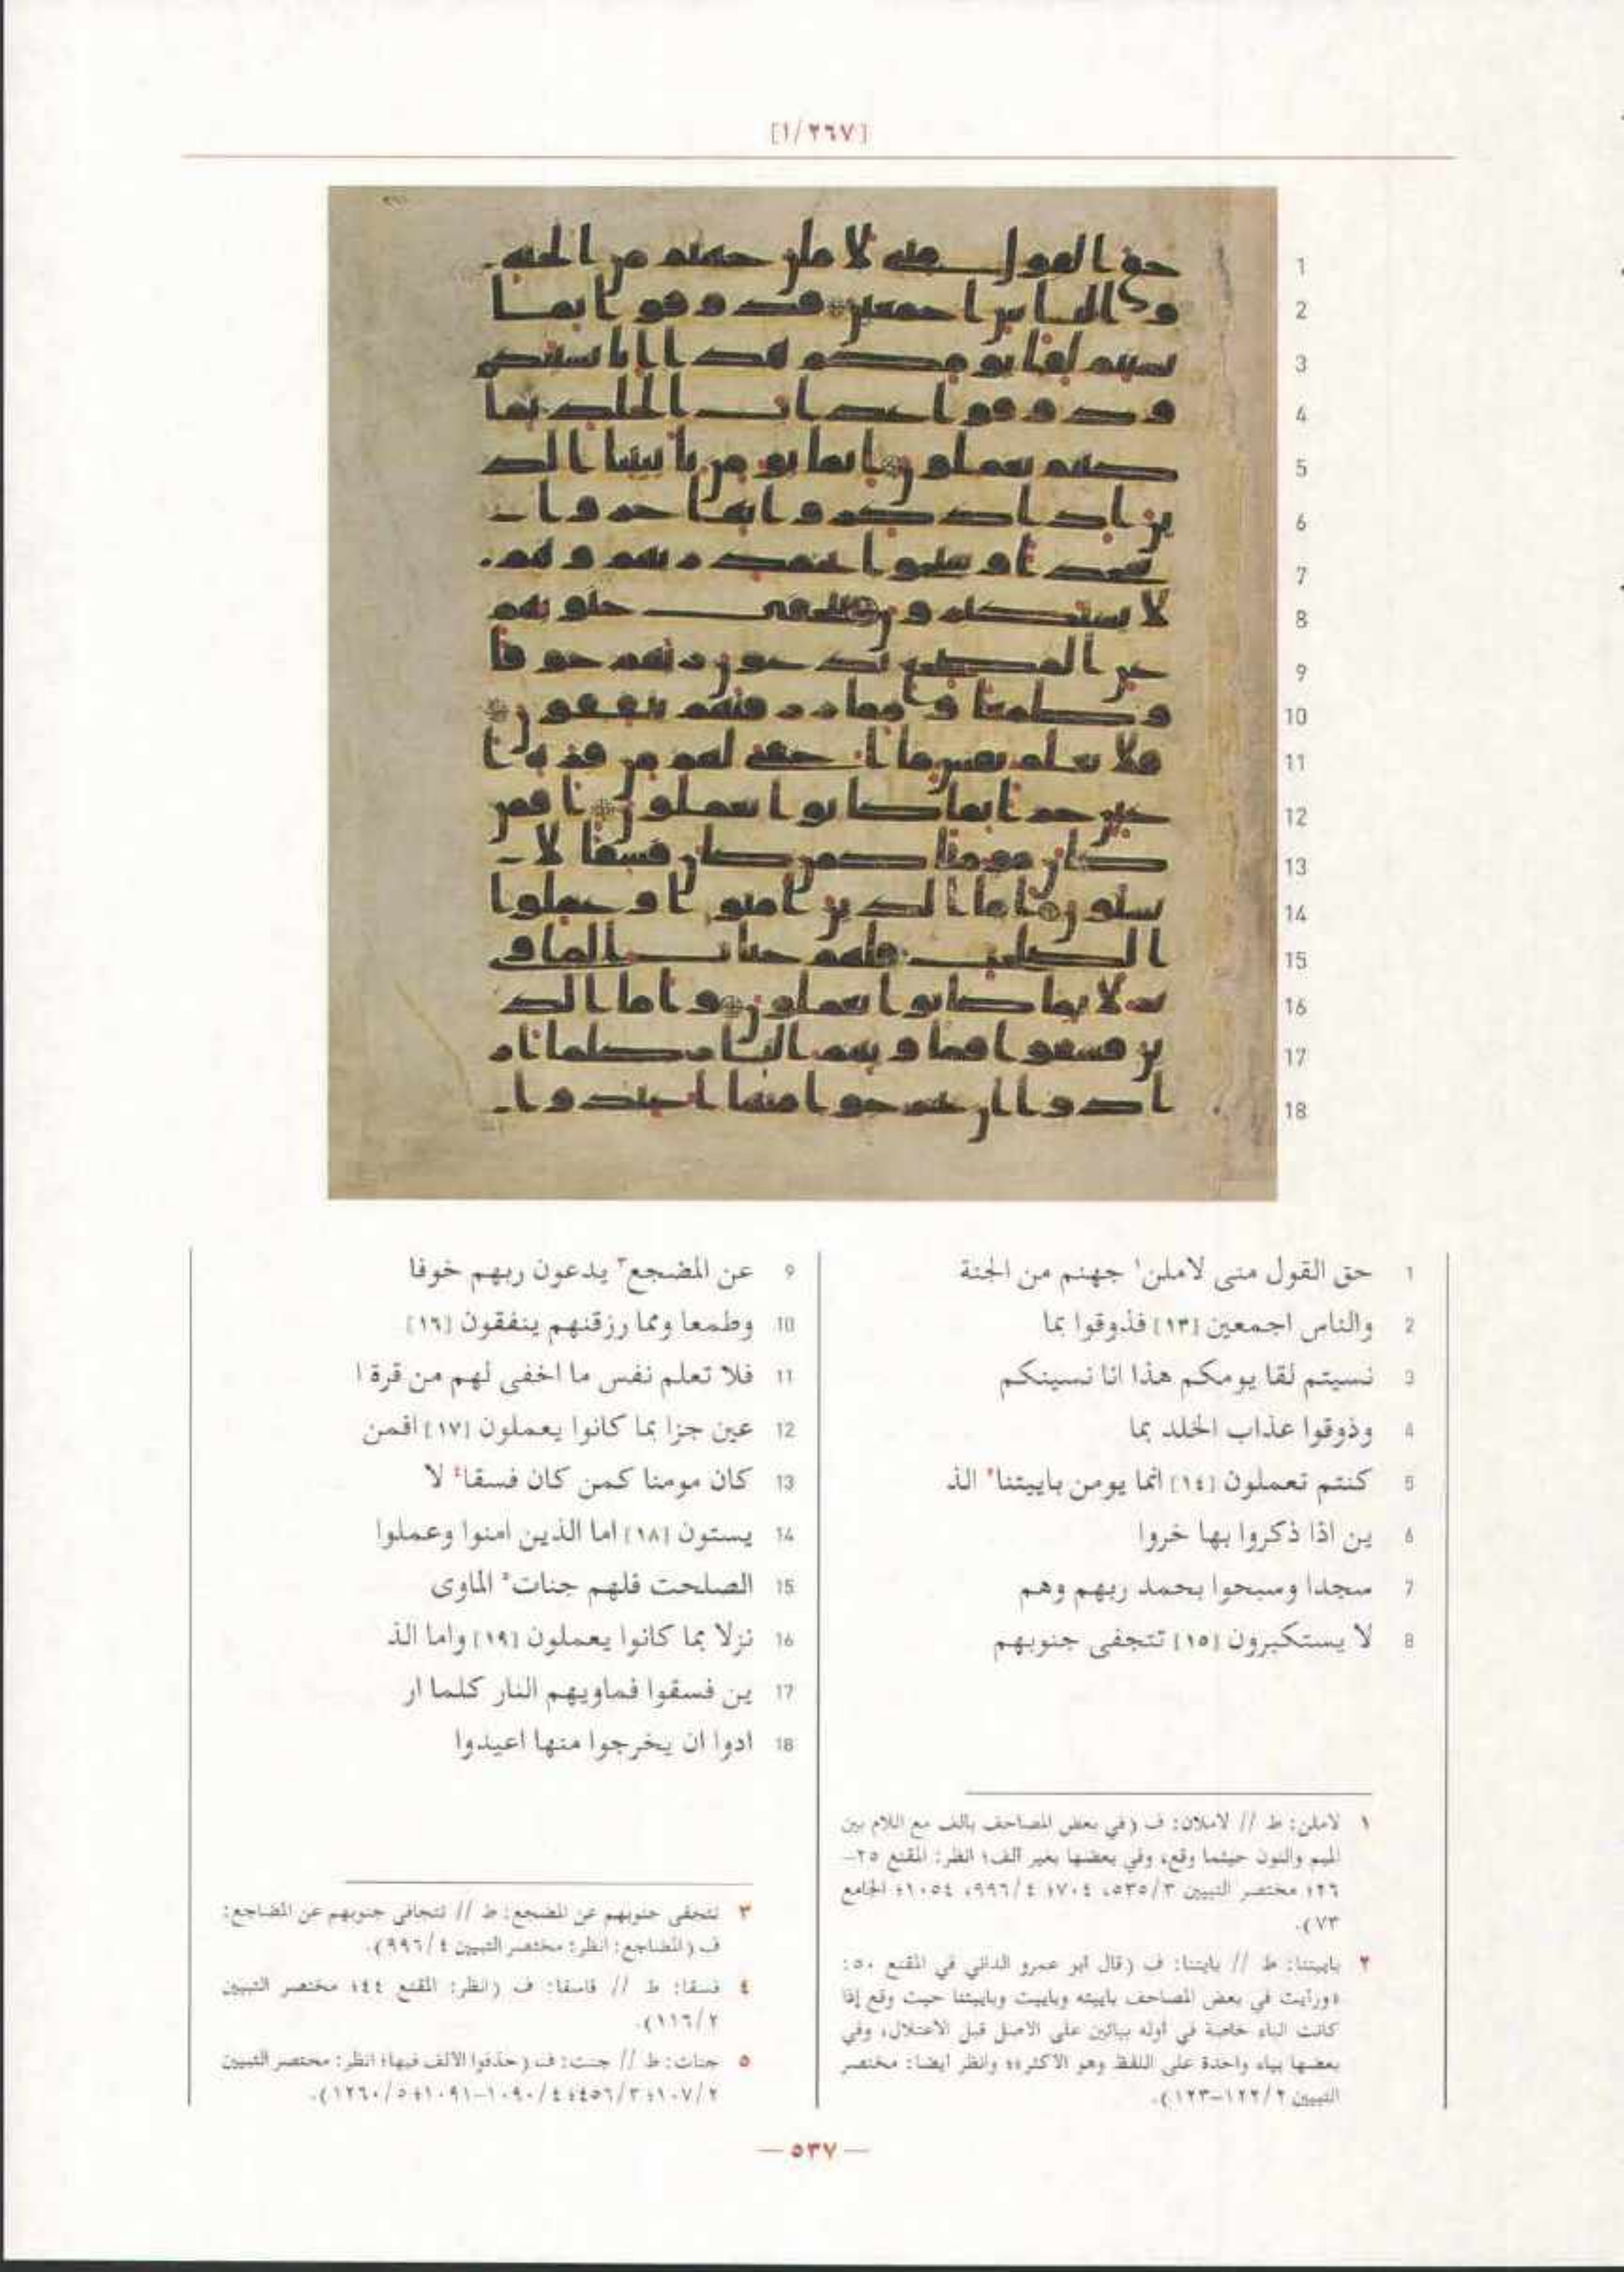 [١/٢٦٧]
1 حق القول منى لاملن١ جهنم من الجنة
2 والناس اجمعين [١٣] فذوقوا بما
3 نسيتم لقا يومكم هذا انا نسينكم
4 وذوقوا عذاب الخلد بما
5 كنتم تعملون [١٤] انما يومن باييتنا٢ الذ
6 ين اذا ذكروا بها خروا
7 سجدا وسبحوا بحمد ربهم وهم
8 لا يستكبرون [١٥] تتجفى جنوبهم
9 عن المضجع٣ يدعون ربهم خوفا
10 وطمعا ومما رزقنهم ينفقون [١٦]
11 فلا تعلم نفس ما اخفى لهم من قرة ا
12 عين جزا بما كانوا يعملون [١٧] افمن
13 كان مومنا كمن كان فسقا٤ لا
14 يستون [١٨] اما الذين امنوا وعملوا
15 الصلحت فلهم جنات٥ الماوى
16 نزلا بما كانوا يعملون [١٩] واما الذ
17 ين فسقوا فماويهم النار كلما ار
18 ادوا ان يخرجوا منها اعيدوا
١ لاملن: ط // لاملان: ف (في بعض المصاحف بالف مع اللام بين
الميم والنون حيثما وقع، وفي بعضها بغير الف؛ انظر: المقنع ٢٥-
٢٦؛ مختصر التبيين ٥٣٥/٣، ٧٠٤؛ ٩٩٦/٤، ١٠٥٤؛ الجامع
٧٣).
٢ باييتنا: ط // بايتنا: ف (قال أبو عمرو الداني في المقنع ٥٠:
«ورأيت في بعض المصاحف باييته وباييت وباييتنا حيث وقع إذا
كانت الباء خاصة في أوله بيائين على الاصل قبل الاعتلال، وفي
بعضها بياء واحدة على اللفظ وهو الاكثر»؛ وانظر أيضا: مختصر
التبيين ١٢٢/٢-١٢٣).
٣ تتجفى جنوبهم عن المضجع: ط // تتجافى جنوبهم عن المضاجع:
ف (المضاجع: انظر: مختصر التبيين ٩٩٦/٤).
٤ فسقا: ط // فاسقا: ف (انظر: المقنع ٤٤؛ مختصر التبيين
١١٦/٢).
٥ جنات: ط // جنت: ف (حذفوا الالف فيها؛ انظر: مختصر التبيين
١٠٧/٢؛ ٤٥٦/٣؛ ١٠٩٠/٤-١٠٩١؛ ١٢٦٠/٥).
— ٥٣٧ —